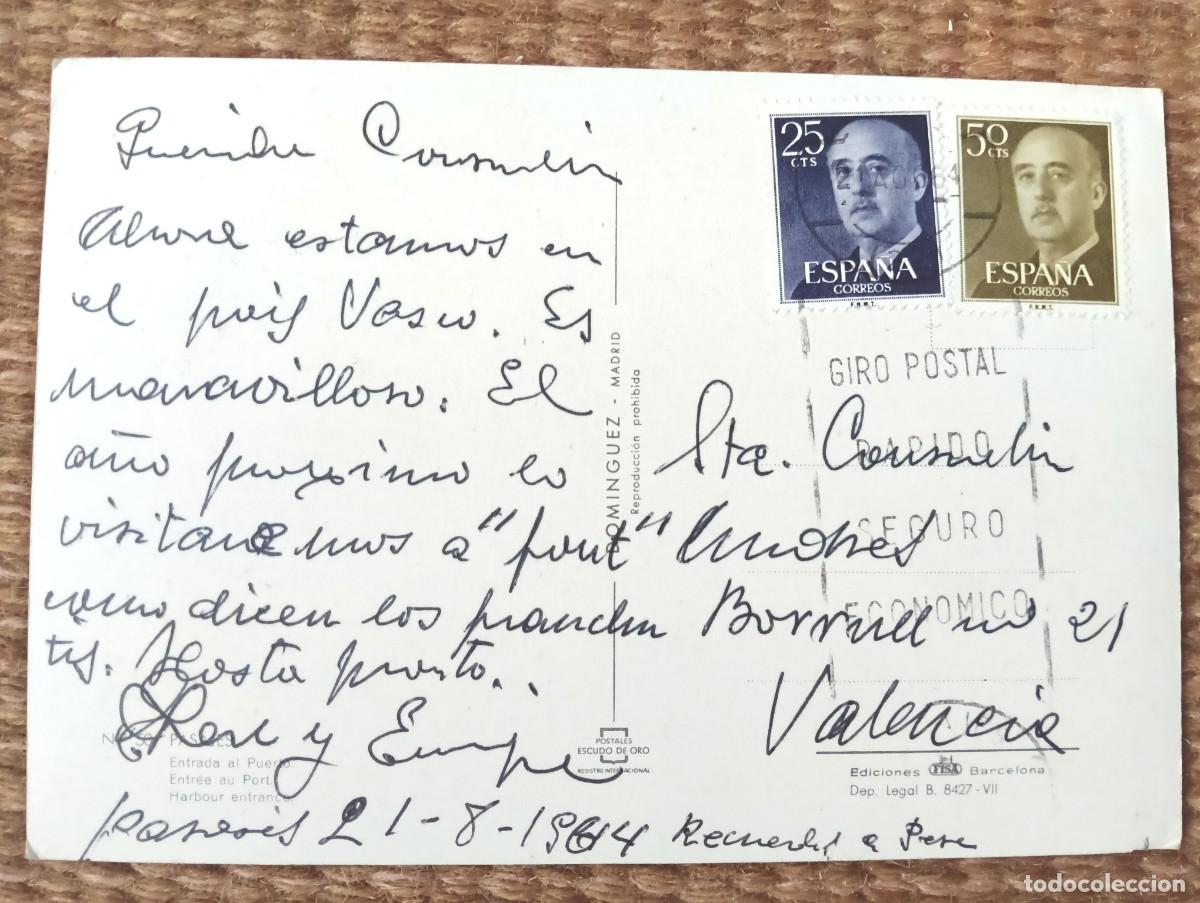 Querida Consuelin
Ahora estamos en
el país Vasco. Es
maravilloso. El
año proximo lo
visitaremos a "font"
como dicen los
tes. Hasta pronto.
y
Pasajes 21-8-1964 Recuerdos a Pepe
Nº PASAJES
Entrada al Puerto
Entrée au Port.
Harbour entrance.
DOMINGUEZ - MADRID
Reproducción prohibida
POSTALES
ESCUDO DE ORO
REGISTRO INTERNACIONAL
25
CTS
ESPAÑA
CORREOS
F.N.M.T.
50
CTS
ESPAÑA
CORREOS
F.N.M.T.
AGO 64
GIRO POSTAL
RAPIDO
SEGURO
ECONOMICO
Sta. Consuelin
Andres
Borrull nº 21
Valencia
Ediciones FISA Barcelona
Dep. Legal B. 8427-VII
todocoleccion